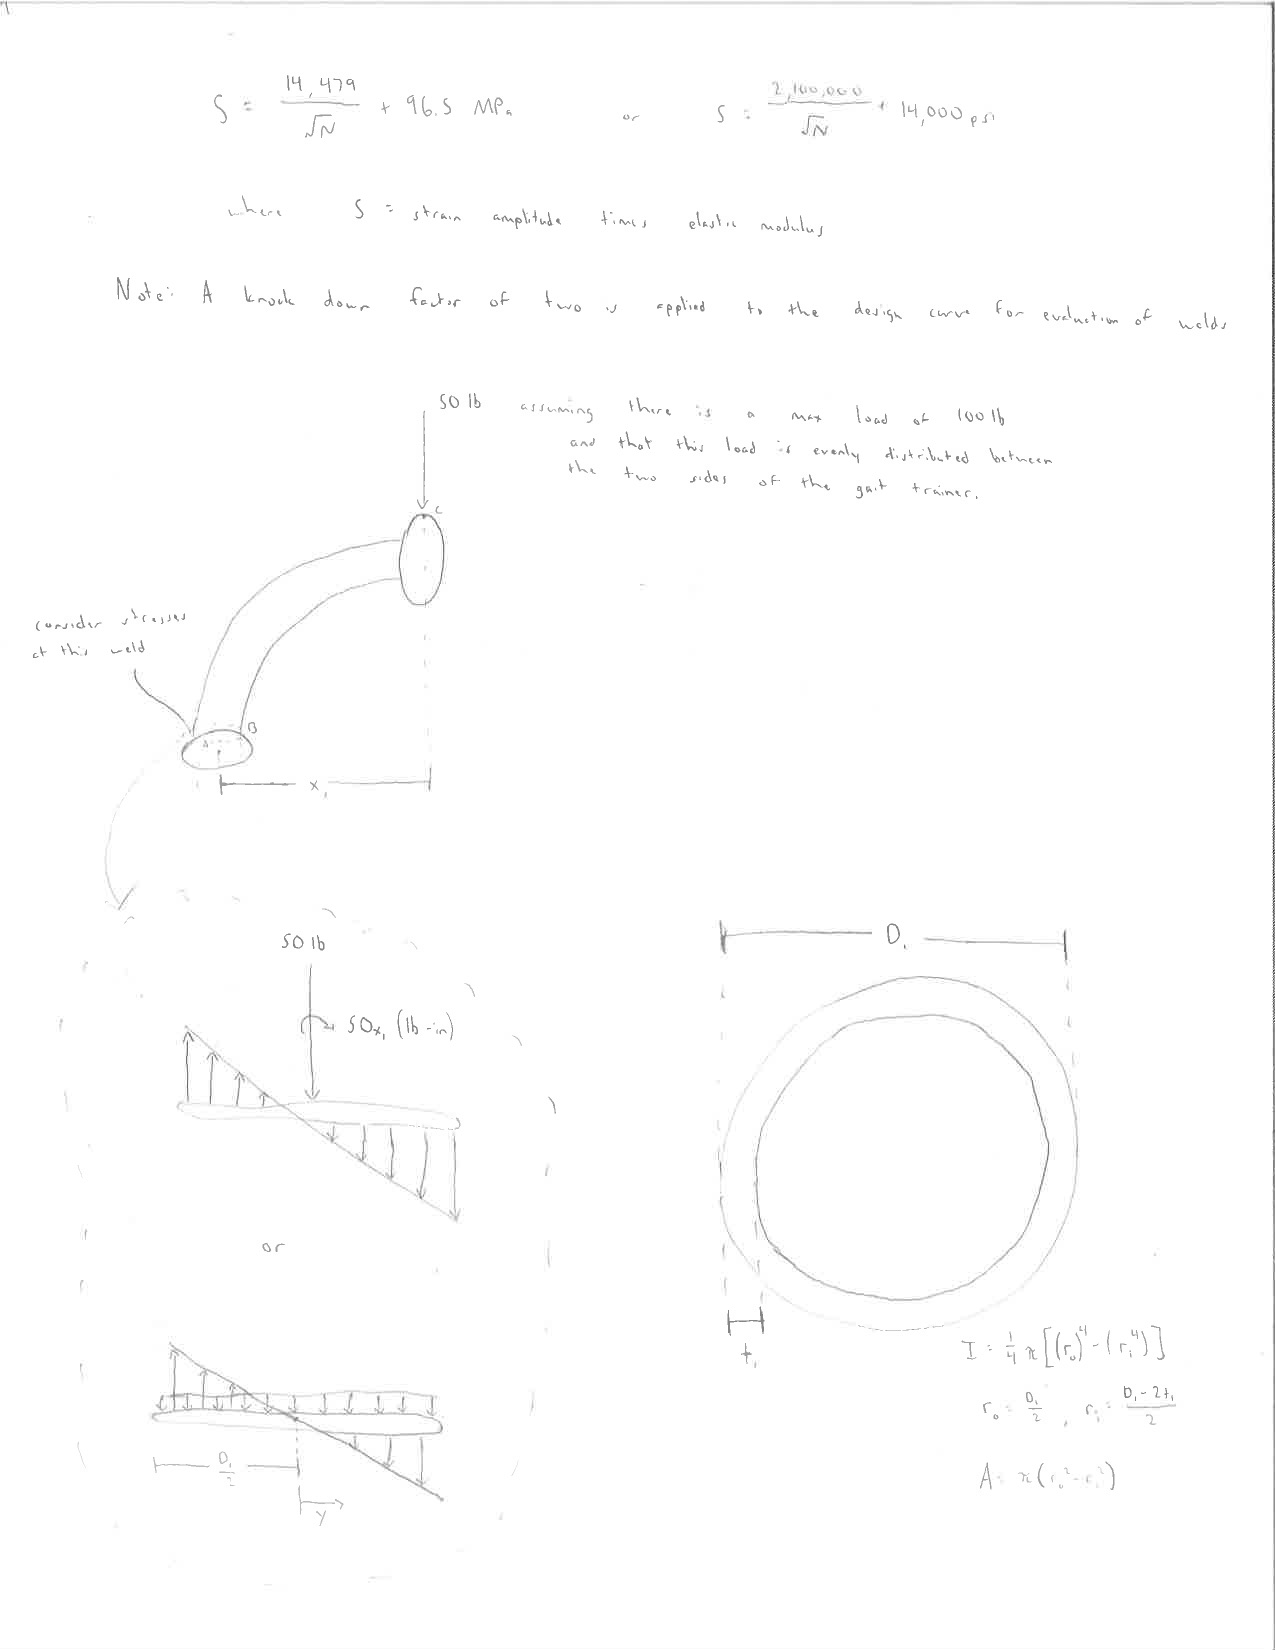 S = 14,479 / √N + 96.5 MPa or S = 2,100,000 / √N + 14,000 psi
where S = strain amplitude times elastic modulus
Note: A knock down factor of two is applied to the design curve for evaluation of welds
50 lb assuming there is a max load of 100 lb
and that this load is evenly distributed between
the two sides of the gait trainer.
C
consider stresses
at this weld
B
A
x₁
50 lb
50x₁ (lb-in)
D₁
or
t₁
I = 1/4 π [(r₀)⁴ - (rᵢ⁴)]
r₀ = D₁/2 , rᵢ = D₁-2t₁ / 2
A = π(r₀² - rᵢ²)
D₁/2
y